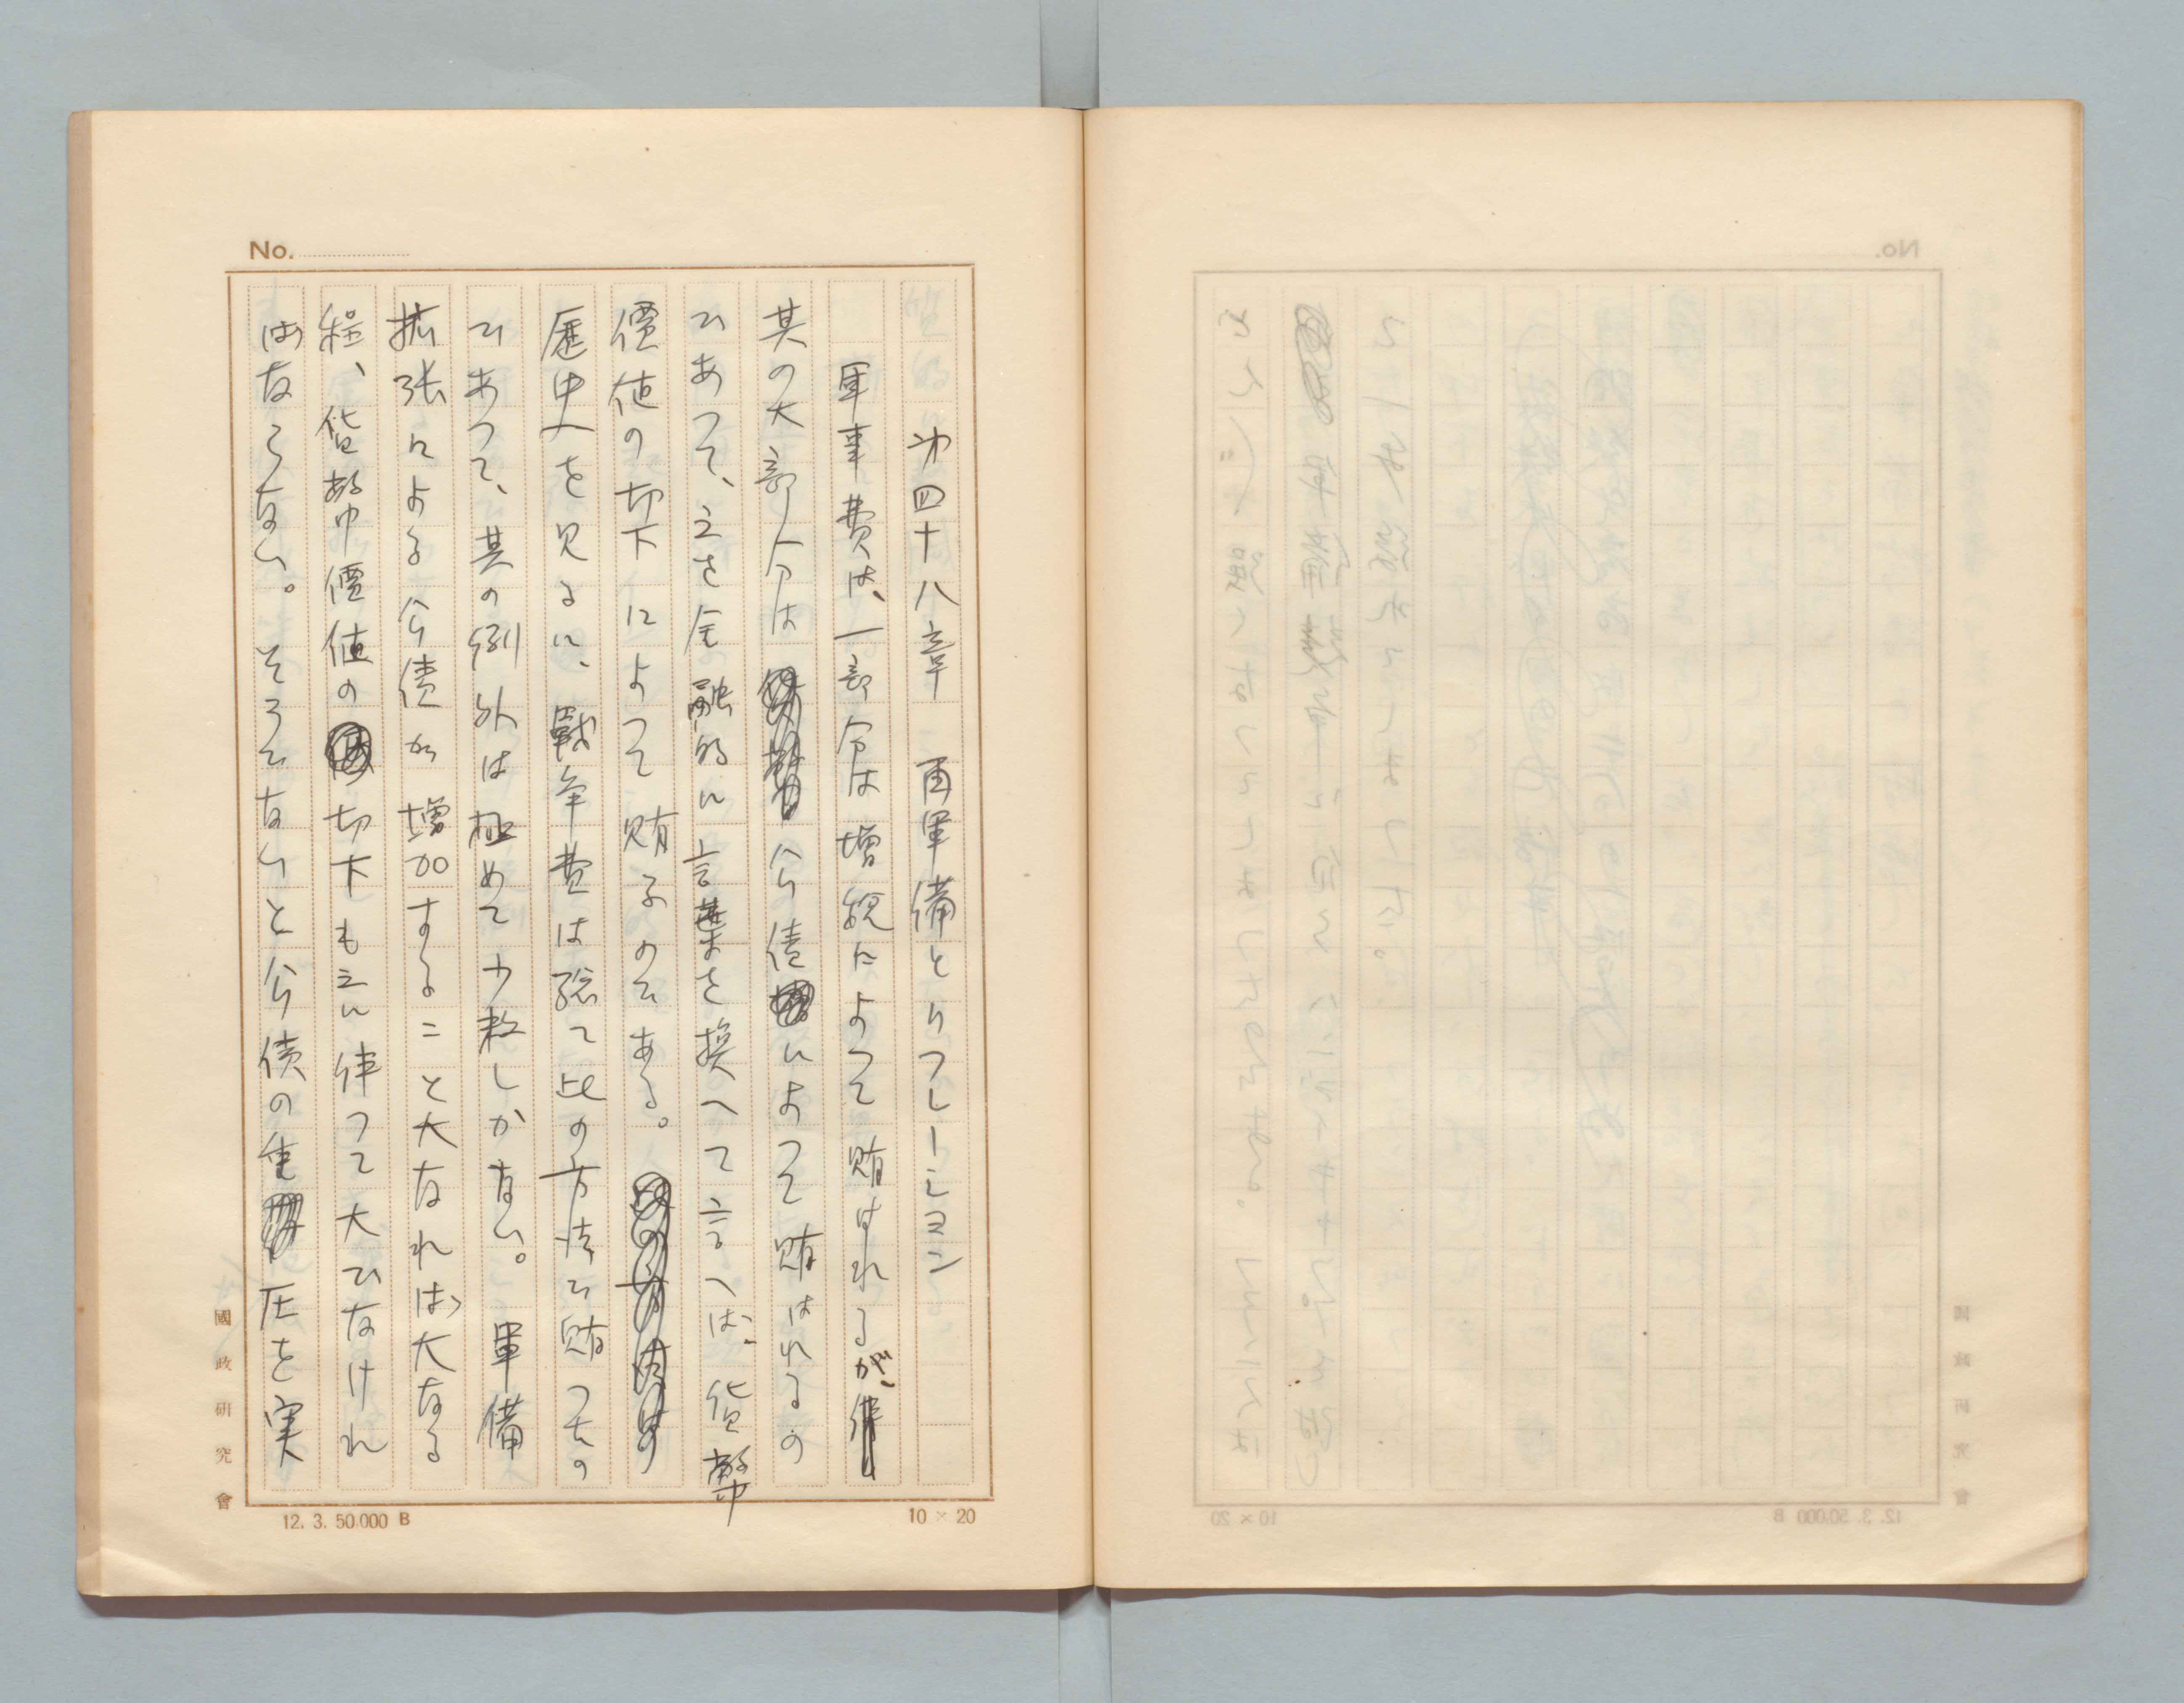 No.
第四十八章　再軍備とリフレーション
軍事費は、一部分は増税によつて賄はれるが、
其の大部分は公債によつて賄はれるの
であつて、之を金融的に言葉を換へて言へば、貨幣
價値の切下によつて賄ふのである。
歴史を見るに、戰争費は総て此の方法で賄つたの
であつて、其の例外は極めて少数しかない。軍備
拡張による公債が増加すること大なれば大なる
程、貨幣價値の切下も之に伴つて大でなけれ
ばならない。そうでないと公債の重圧を実
國政研究會
12. 3. 50.000 B
10 × 20